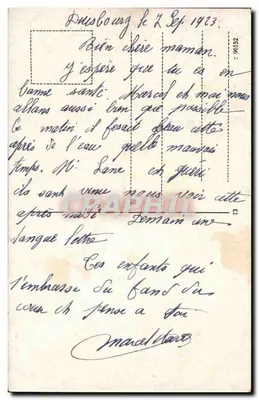 Duisbourg le 7 Sep. 1923.
Bien chère maman.
J'espère que tu es en
bonne santé. Marcel et moi nous
allons aussi bien que possible
le matin il faisait beau cette
après de l'eau quelle mauvais
temps. Mr Lane est guéri
ils sont venu nous voir cette
après midi Demain une
longue lettre
Tes enfants qui
t'embrasse du fond du
cœur et pense a toi
Marcel
C 96152
13